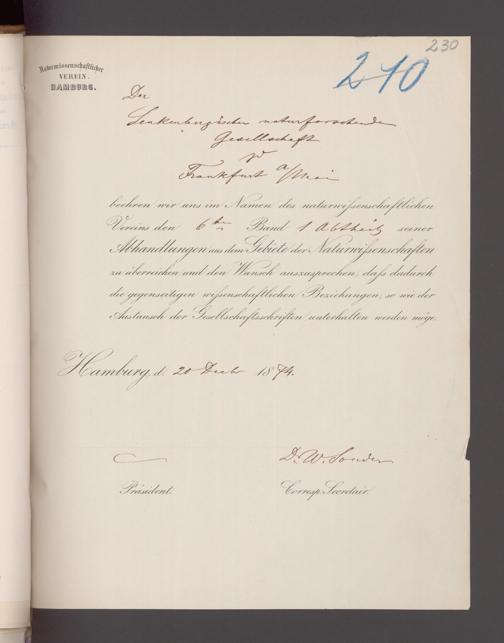 230
210
Naturwissenschaftlicher
VEREIN.
HAMBURG.
Der
Senkenbergischen naturforschenden
Gesellschaft
Frankfurt a/Main
beehren wir uns im Namen des naturwissenschaftlichen
Vereins den 6ten Band 1 Abtheil seiner
Abhandlungen aus dem Gebiete der Naturwissenschaften
zu überreichen und den Wunsch auszusprechen, dass dadurch
die gegenseitigen wissenschaftlichen Beziehungen, so wie der
Austausch der Gesellschaftsschriften unterhalten werden möge.
Hamburg, d. 20 Decbr 1874.
Dr. W. Sonder
Präsident. Corresp. Secretair.